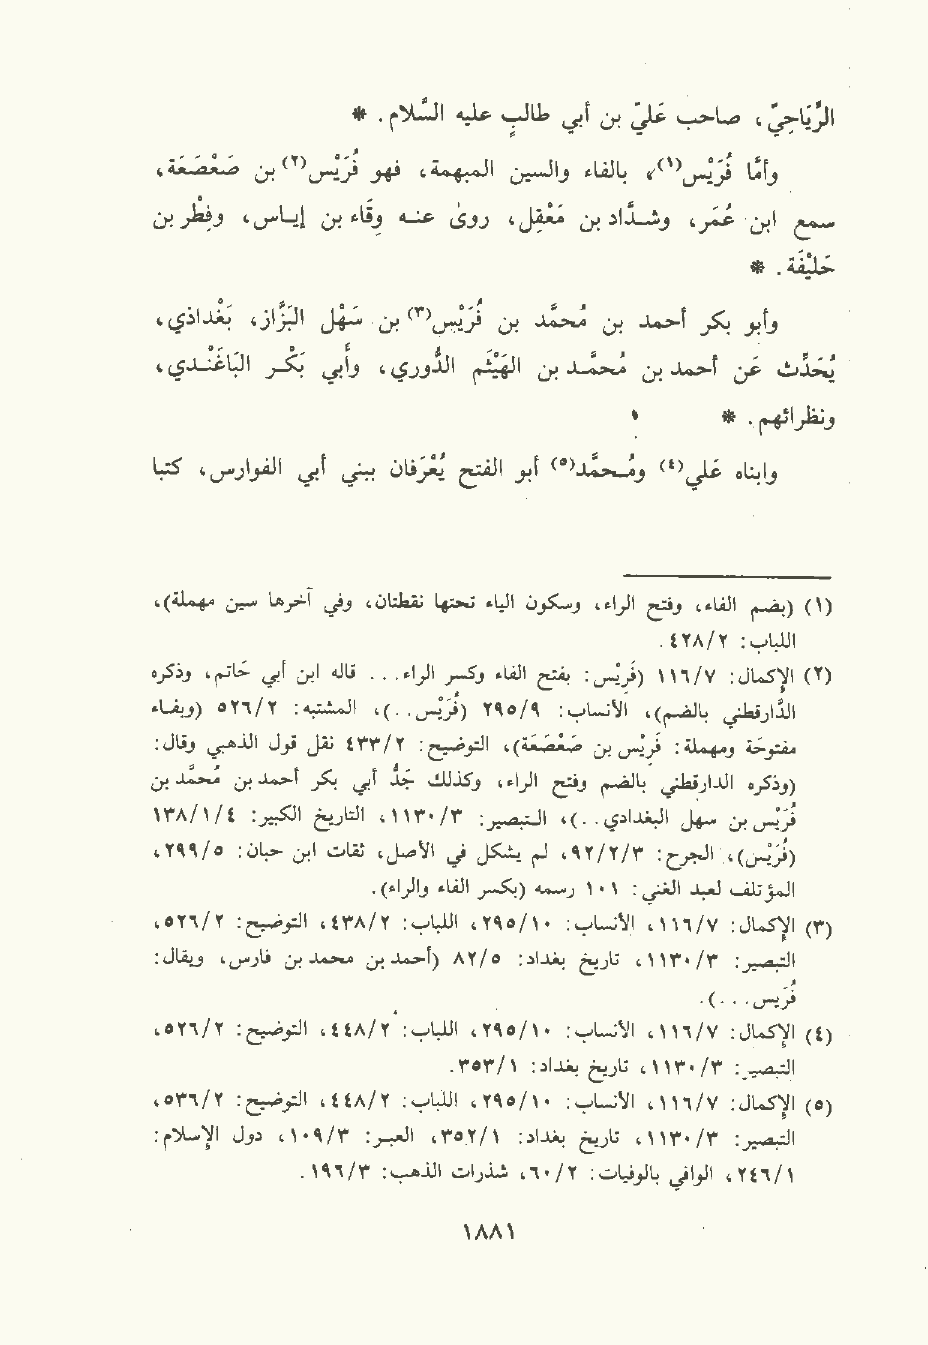 الرِّيَاحِيّ، صاحب عَليّ بن أبي طالبٍ عليه السَّلام. *
وأمَّا فُرَيْس(١)، بالفاء والسين المبهمة، فهو فُرَيْس(٢) بن صَعْصَعَة،
سمع ابن عُمَر، وشدَّاد بن مَعْقِل، روىٰ عنه وِقَاء بن إياس، وفِطْر بن
خَلِيْفَة. *
وأبو بكر أحمد بن مُحمَّد بن فُرَيْس(٣) بن سَهْل البَزَّاز، بَغْداذي،
يُحَدِّث عَن أحمد بن مُحمَّد بن الهَيْثَم الدُّوري، وأبي بَكْر البَاغَنْدي،
ونظرائهم. *
وابناه عَلي(٤) ومُحمَّد(٥) أبو الفتح يُعْرَفان ببني أبي الفوارس، كتبا
(١) (بضم الفاء، وفتح الراء، وسكون الياء تحتها نقطتان، وفي آخرها سين مهملة)،
اللباب: ٤٢٨/٢.
(٢) الإكمال: ١١٦/٧ (فَرِيْس: بفتح الفاء وكسر الراء... قاله ابن أبي حَاتم، وذكره
الدَّارقطني بالضم)، الأنساب: ٢٩٥/٩ (فُرَيْس..)، المشتبه: ٥٢٦/٢ (وبفاء
مفتوحَة ومهملة: فَرِيْس بن صَعْصَعَة)، التوضيح: ٤٣٣/٢ نقل قول الذهبي وقال:
(وذكره الدارقطني بالضم وفتح الراء، وكذلك جَدُّ أبي بكر أحمد بن مُحمَّد بن
فُرَيْس بن سهل البغدادي..)، التبصير: ١١٣٠/٣، التاريخ الكبير: ١٣٨/١/٤
(فُرَيْس)، الجرح: ٩٢/٢/٣، لم يشكل في الأصل، ثقات ابن حبان: ٢٩٩/٥،
المؤتلف لعبد الغني: ١٠١ رسمه (بكسر الفاء والراء).
(٣) الإكمال: ١١٦/٧، الأنساب: ٢٩٥/١٠، اللباب: ٤٣٨/٢، التوضيح: ٥٢٦/٢،
التبصير: ١١٣٠/٣، تاريخ بغداد: ٨٢/٥ (أحمد بن محمد بن فارس، ويقال:
فُرَيس...).
(٤) الإكمال: ١١٦/٧، الأنساب: ٢٩٥/١٠، اللباب: ٤٤٨/٢، التوضيح: ٥٢٦/٢،
التبصير: ١١٣٠/٣، تاريخ بغداد: ٣٥٣/١.
(٥) الإكمال: ١١٦/٧، الأنساب: ٢٩٥/١٠، اللباب: ٤٤٨/٢، التوضيح: ٥٣٦/٢،
التبصير: ١١٣٠/٣، تاريخ بغداد: ٣٥٢/١، العبر: ١٠٩/٣، دول الإسلام:
٢٤٦/١، الوافي بالوفيات: ٦٠/٢، شذرات الذهب: ١٩٦/٣.
١٨٨١